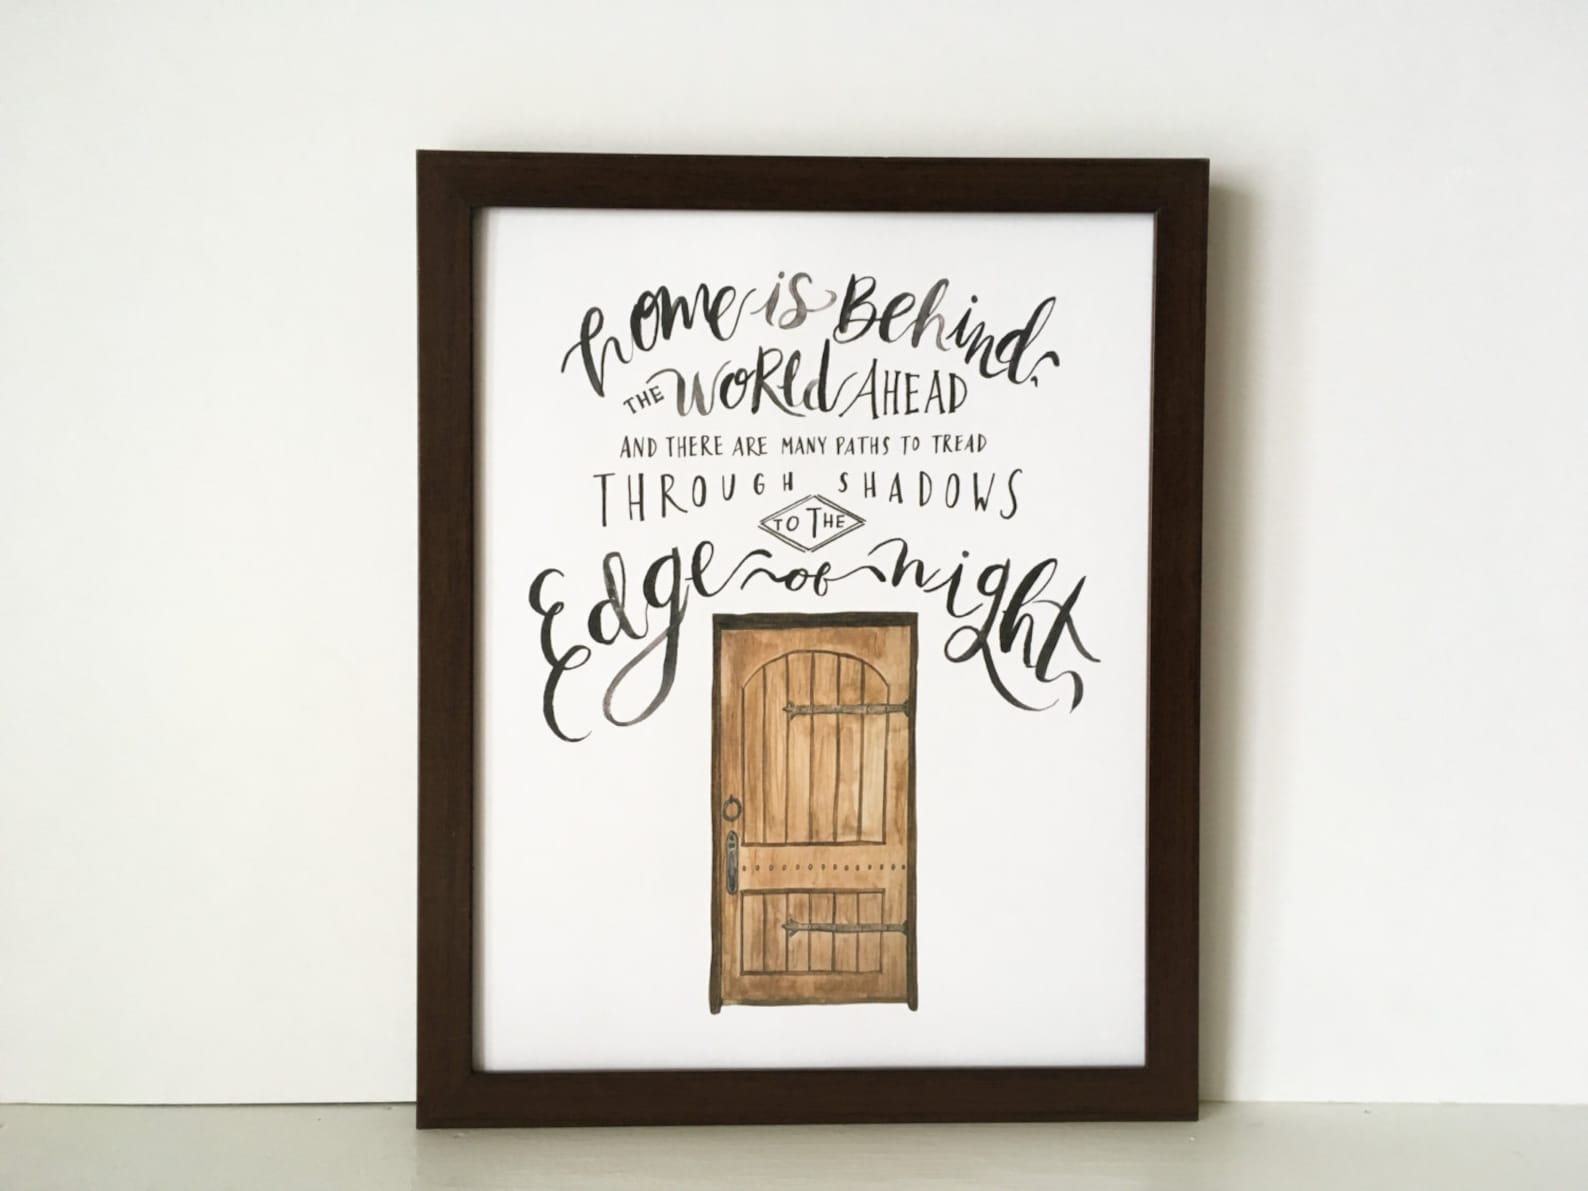 home is Behind,
THE WORld AHEAD
AND THERE ARE MANY PATHS TO TREAD
THROUGH SHADOWS
TO THE
Edge of night